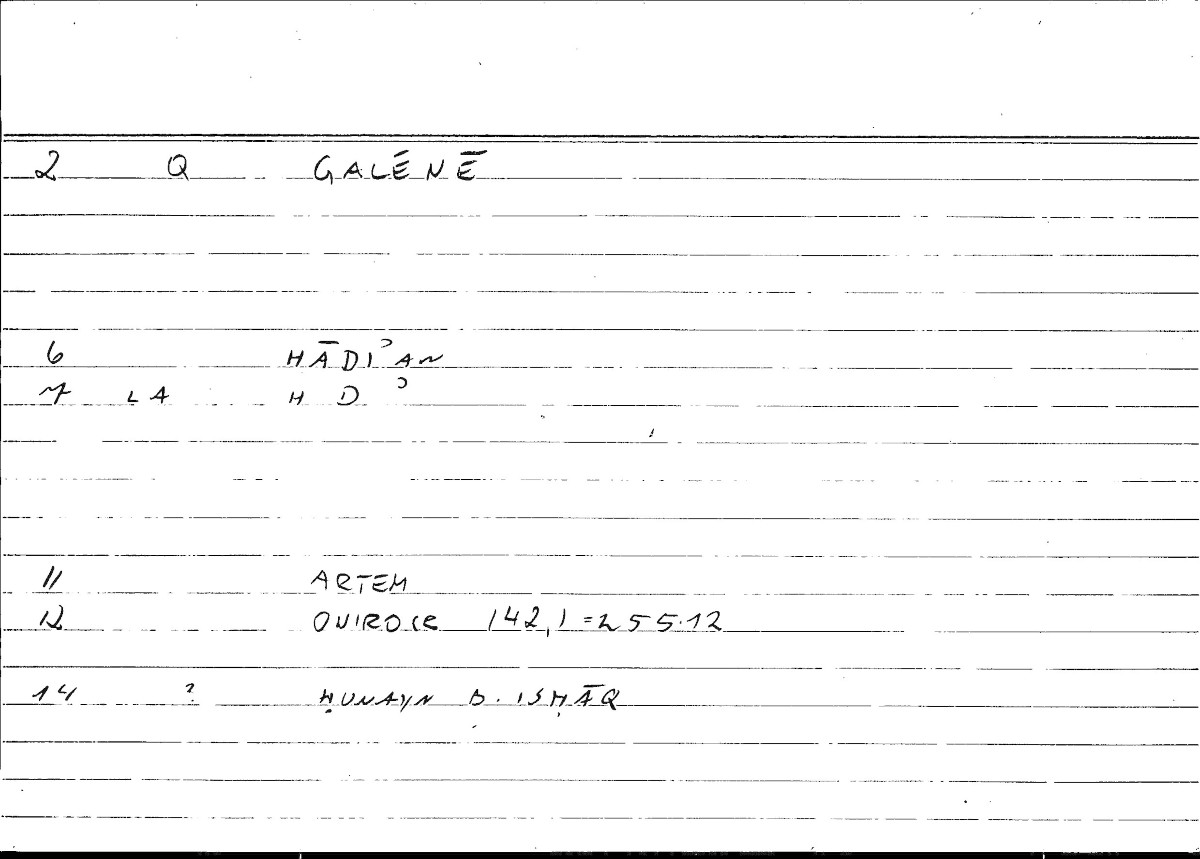 2 Q GALĒNĒ
6 HĀDIʾAN
7 LA H D ʾ
11 ARTEM
12 OVIROCR 142,1=255.12
14 ? ḤUNAYN B. ISḤĀQ